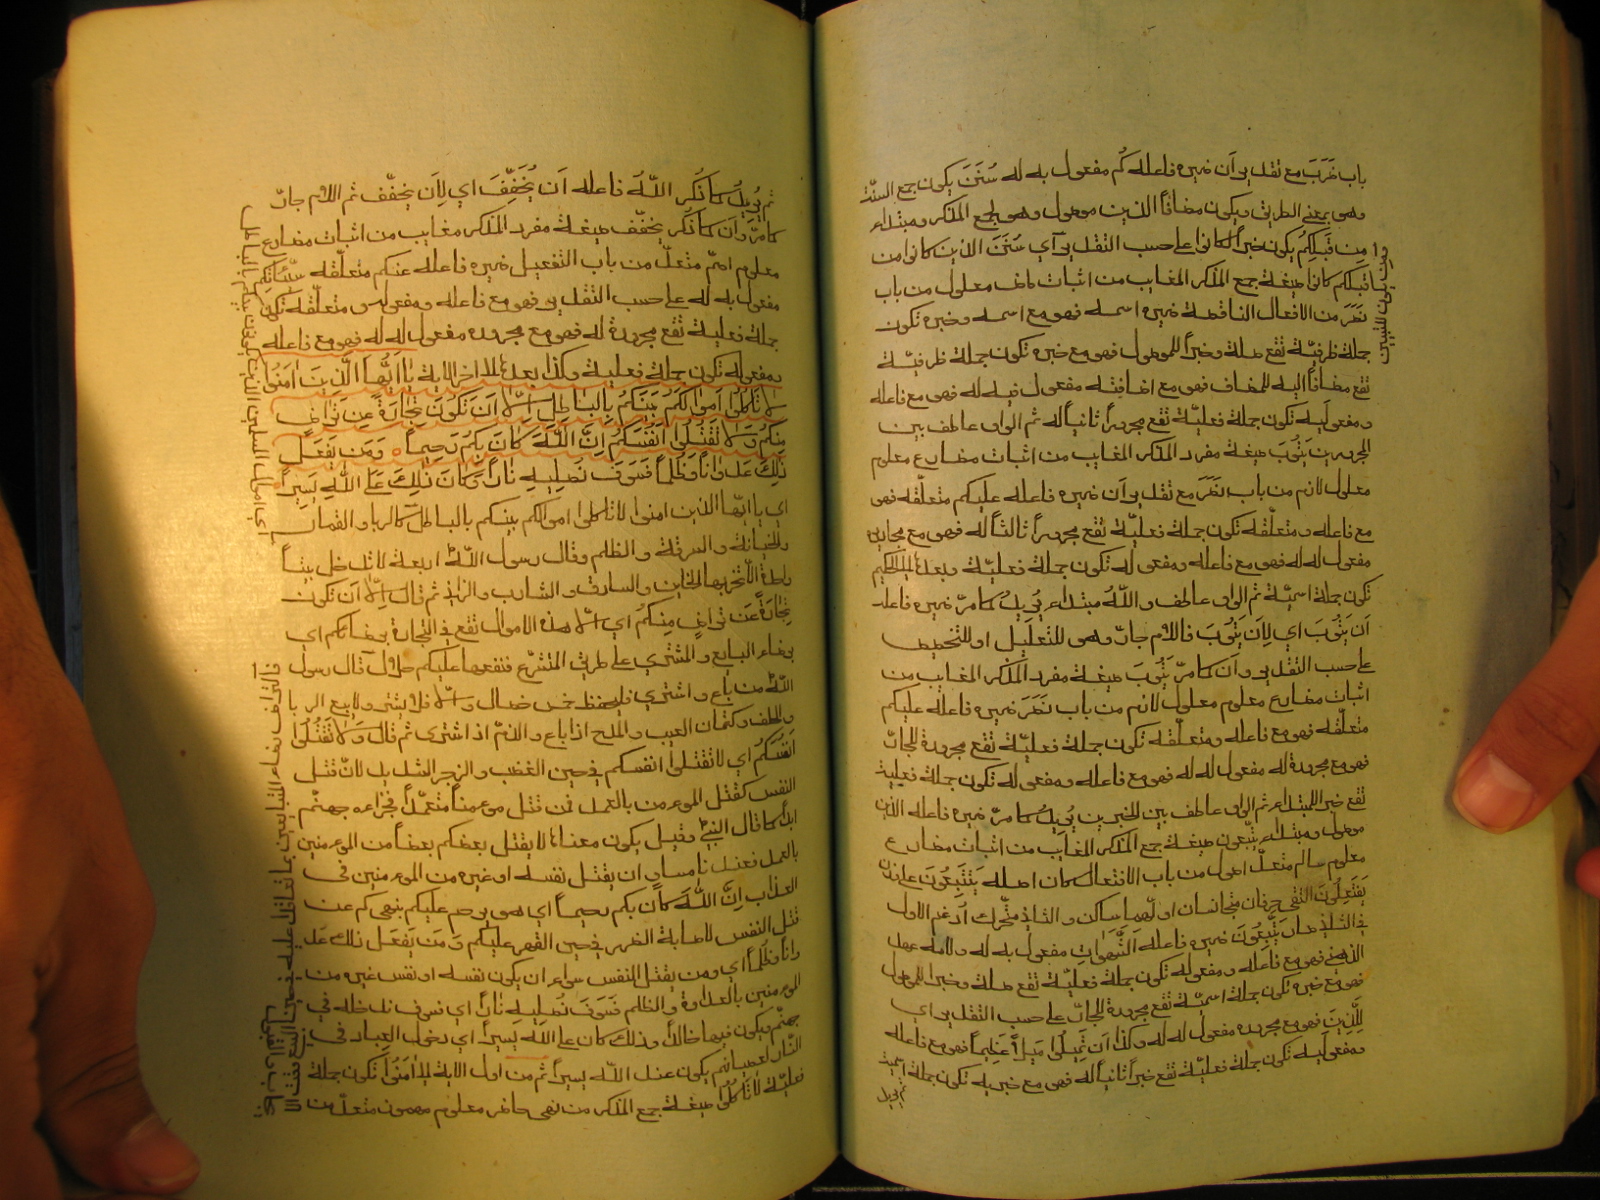 باب ضَرَبَ مع ثقل بي اَن ضميره فاعله كُم مفعول به له سُنَنَ يكون جمع السنّة
وهي بمعني الطريق ويكون مضافاً الذين موصول وهي لجمع المذكر ومبتداء
مِن قَبلِكُم يكون خبراً كانوا على حسب الثقل بي آي سُنَنَ الذين كانوا من
قبلكم كانوا صيغة جمع المذكر المغايب من اثبات ماض معلول من باب
نَصَرَ من الافعال الناقصة ضميره اسمه فهو مع اسمه وخبره تكون
جملة ظرفيّة تقع صلة وخبراً للموصول فهو مع خبره تكون جملة ظرفيّة
تقع مضافاً اليه للمضاف فهو مع اضافته مفعول فيه له فهو مع فاعله
ومفعوليه تكون جملة فعليّة تقع مجروراً ثانياً له ثم الواو عاطف بين
المجرورين يَتُوبَ صيغة مفرد المذكر المغايب من اثبات مضارع معلوم
معلول لازم من باب نَصَرَ مع ثقل بي اَن ضميره فاعله عليكم متعلّقه فهو
مع فاعله ومتعلّقه تكون جملة فعليّة تقع مجروراً ثالثاً له فهو مع مجاريره
مفعول له له فهو مع فاعله ومفعوله تكون جملة فعليّة وبعده عليم حكيم
تكون جملة اسميّة ثم الواو عاطف واللّهُ مبتداء يُرِيدُ كما مرّ ضميره فاعله
اَن يَتُوبَ اي لِاَن يَتُوبَ فاللام جارّ وهي للتعليل او للتخصيص
على حسب الثقل بي واَن كما مرّ يَتُوبَ صيغة مفرد المذكر المغايب من
اثبات مضارع معلوم معلول لازم من باب نَصَرَ ضميره فاعله عليكم
متعلّقه فهو مع فاعله ومتعلّقه تكون جملة فعليّة تقع مجرورة للجارّ
فهو مع مجروره مفعول له له فهو مع فاعله ومفعوله تكون جملة فعلية
تقع خبراً للمبتداء ثم الواو عاطف بين الخبرين يُرِيدُ كما مرّ ضميره فاعله الذين
موصول ومبتداء يتّبعون صيغة جمع المذكر المغايب من اثبات مضارع
معلوم سالم متعدّ معلول من باب الافتعال كان اصله يَتتَبِعُونَ على وزن
يَفتَعِلُونَ التقى حرفان متجانسان اوّلهما ساكن والثاني متحّرك اُدغم الاول
في الثاني صار يَتَّبِعُونَ ضميره فاعله الشَّهَوَاتِ مفعول به له ولامه عهد
الذهني فهو مع فاعله ومفعوله تكون جملة فعليّة تقع صلة وخبراً للموصول
فهو مع خبره تكون جملة اسميّة تقع مجرورة للجارّ على حسب الثقل بي اي
لِلَّذِينَ فهو مع مجروره مفعول له له وكذا اَن تَمِيلُوا مَيلاً عَظِيماً فهو مع فاعله
ومفعوليه تكون جملة فعليّة تقع خبراً ثانياً له فهو مع خبريه تكون جملة اسمية
ثم يريد
ثم يُرِيدُ كما ذُكر اللّهُ فاعله اَن يُخَفِّفَ اي لِاَن يخفّف ثم اللام جارّ
كما مرّ وَاَن كما ذُكر يخفّف صيغة مفرد المذكر مغايب من اثبات مضارع
معلوم اصمّ متعدّ من باب التفعيل ضميره فاعله عنكم متعلّقه سيّئاتكم
مفعول به له على حسب الثقل بي فهو مع فاعله ومفعوله ومتعلّقه تكون
جملة فعليّة تقع مجرورة له فهو مع مجروره مفعول له له فهو مع فاعله
ومفعوله تكون جملة فعلية وكذا بعده الى اخر الاية يَا اَيُّهَا الَّذِينَ اٰمَنُوا
لَا تَاكُلُوا اَموَالَكُم بَينَكُم بِالبَاطِلِ اِلّا اَن تَكُونَ تِجَارَةً عَن تَرَاضٍ
مِنكُم وَلَا تَقتُلُوا اَنفُسَكُم اِنَّ اللّٰهَ كَانَ بِكُم رَحِيماً ه وَمَن يَفعَل
ذٰلِكَ عُدوَاناً وَظُلماً فَسَوفَ نُصلِيهِ نَاراً وَكَانَ ذٰلِكَ عَلَى اللّٰهِ يَسِيراً
اي يا ايّها الذين امنوا لا تاكلوا اموالكم بينكم بالباطل كالربا والقمار
والخيانة والسرقة والظلم وقال رسول اللّٰه اربعة لا تدخل بيتاً
واحدة الّا تخربها الخاين والسارق والشارب والزاني ثم قال اِلّا اَن تكون
تِجَارَةً عَن تَراضٍ مِنكُم اي الّا هذه الاموال تقع في التجارة برضائكم اي
برضاء البايع والمشتري على طريق المتشرّع فنفعها عليكم حلال قال رسول
اللّٰه من باع واشترى فليحفظ خمس خصال والّا فلا يشتر ولا يبع الربا
والحلف وكتمان العيب والمدح اذا باع والذمّ اذا اشترى ثم قال وَلَا تَقتُلُوا
اَنفُسَكُم اي لا تقتلوا انفسكم في حين الغضب والزجر الشديد لانّ قتل
النفس كقتل المومن بالعمد فمن قتل مومناً متعمّداً فجزاءه جهنّم
ابداً كما قال النبي وقيل يكون معناه لا يقتل بعضكم بعضاً من المومنين
بالعمد فعند ناس ان يقتل نفسه او غيره من المومنين في
العذاب اِنَّ اللّٰهَ كَانَ بكم رحيماً اي هو رحيم عليكم ينهى كم عن
قتل النفس لاصابة الضرر في حين القهر عليكم وَمَن يَفعَل ذٰلك عد
واناً وظُلماً اي ومن يقتل النفس سواء ان يكون نفسه او نفس غيره من
المومنين بالعداوة والظلم فَسَوفَ نُصلِيهِ نَاراً اي فسوف ندخله في
جهنّم ويكون فيها خالداً وذلك كان على اللّٰه يسيراً اي دخول العباد في
النّار لعصيانهم يكون عند اللّٰه يسيراً ثم من اول الاية الى اٰمَنُوا تكون جملة
فعليّة لَا تَاكُلُوا صيغة جمع المذكر من نهي حاضر معلوم مهموز متعدّ من
اي اموال المسلمين الذين